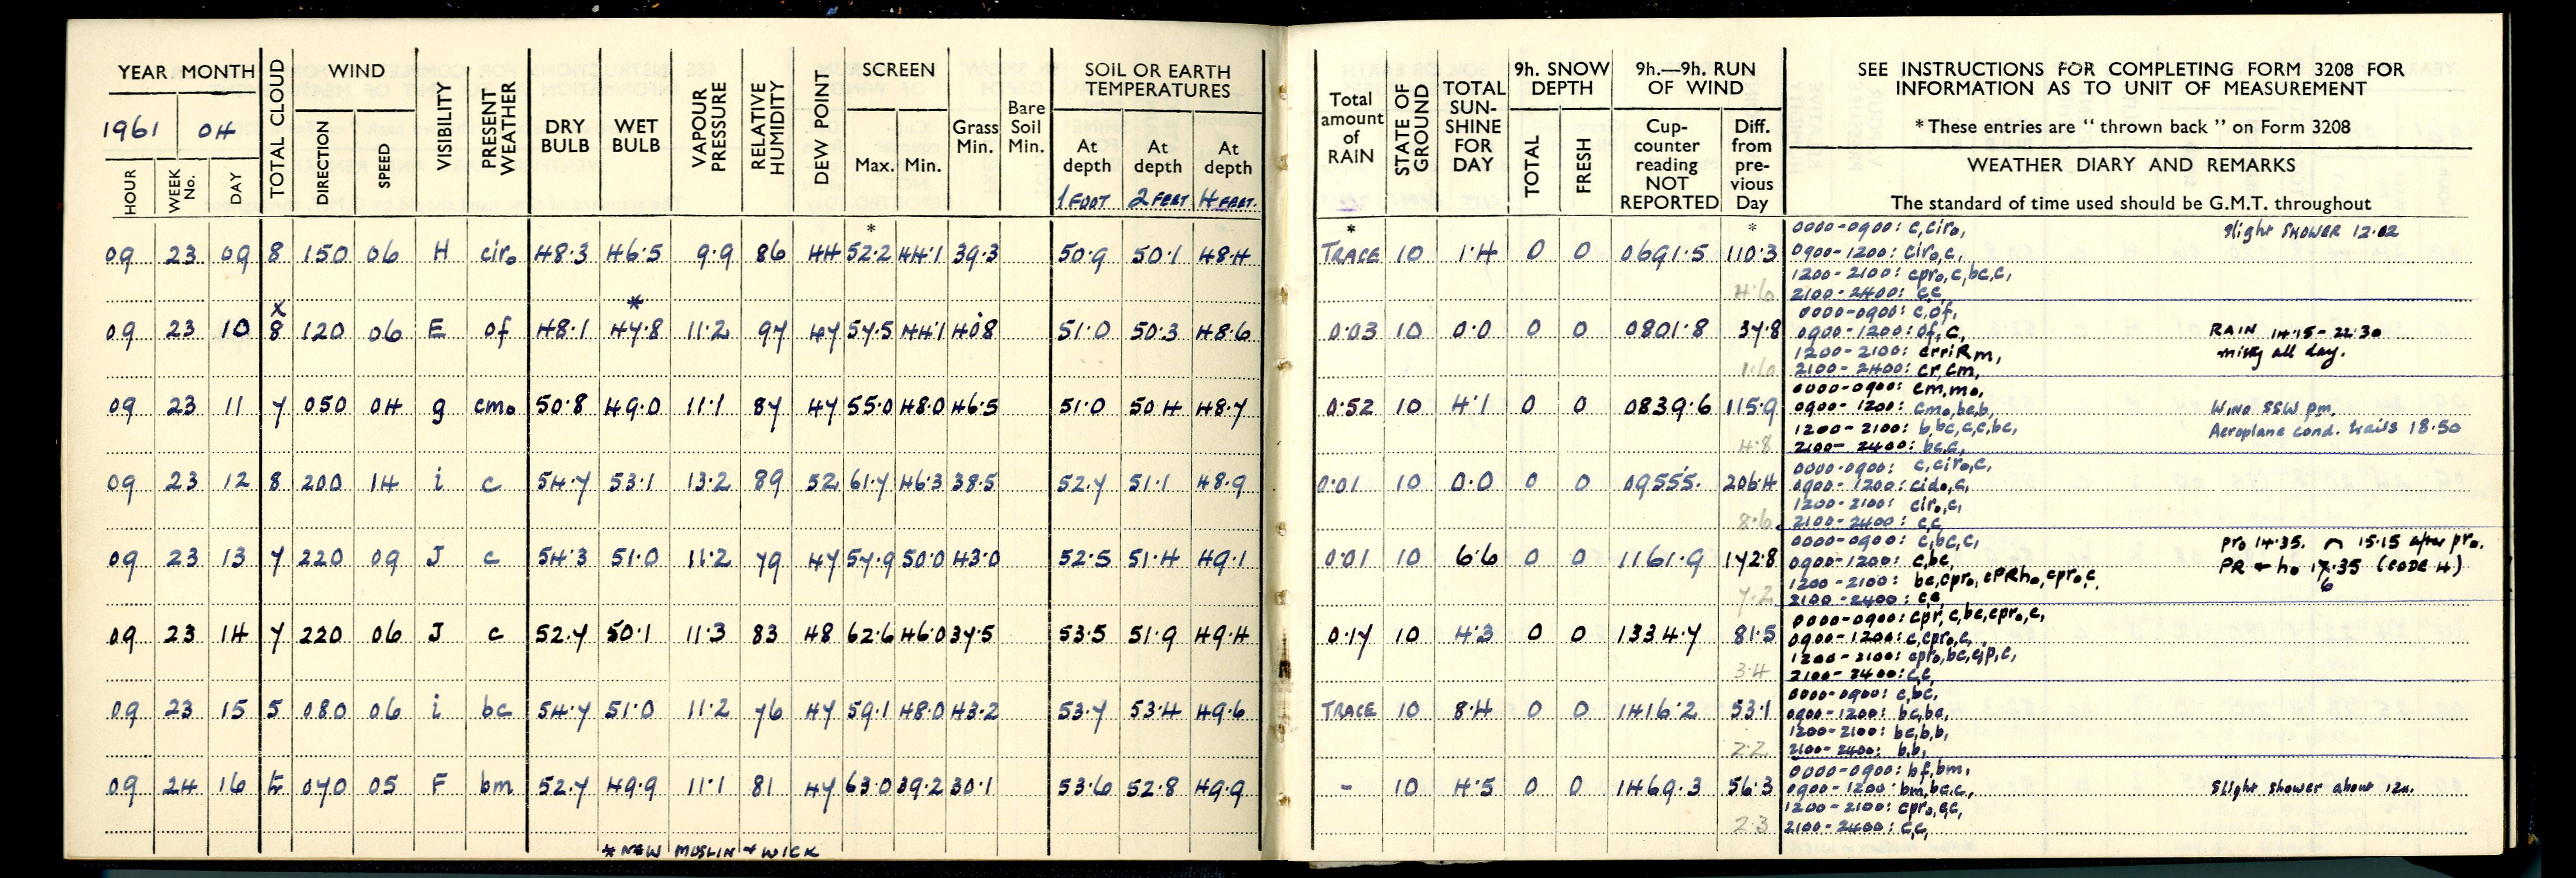 YEAR MONTH
1961 04
HOUR WEEK No. DAY TOTAL CLOUD WIND DIRECTION SPEED VISIBILITY PRESENT WEATHER DRY BULB WET BULB VAPOUR PRESSURE RELATIVE HUMIDITY DEW POINT SCREEN Max. Min. Grass Min. Bare Soil Min. SOIL OR EARTH TEMPERATURES At depth 1 FOOT At depth 2 FEET At depth 4 FEET.
* 
09 23 09 8 150 06 H ciro 48.3 46.5 9.9 86 44 52.2 44.1 39.3 50.9 50.1 48.4
x *
09 23 10 8 120 06 E of 48.1 47.8 11.2 97 47 57.5 44.1 40.8 51.0 50.3 48.6
09 23 11 7 050 04 g cmo 50.8 49.0 11.1 87 47 55.0 48.0 46.5 51.0 50.4 48.7
09 23 12 8 200 14 i c 54.7 53.1 13.2 89 52 61.7 46.3 38.5 52.7 51.1 48.9
09 23 13 7 220 09 J c 54.3 51.0 11.2 79 47 57.9 50.0 43.0 52.5 51.4 49.1
09 23 14 7 220 06 J c 52.7 50.1 11.3 83 48 62.6 46.0 37.5 53.5 51.9 49.4
09 23 15 5 080 06 i bc 54.7 51.0 11.2 76 47 59.1 48.0 43.2 53.7 53.4 49.6
09 24 16 070 05 F bm 52.7 49.9 11.1 81 47 63.0 39.2 30.1 53.6 52.8 49.9
* NEW MUSLIN + WICK
Total amount of RAIN STATE OF GROUND TOTAL SUN-SHINE FOR DAY 9h. SNOW DEPTH TOTAL FRESH 9h.—9h. RUN OF WIND Cup-counter reading NOT REPORTED Diff. from pre-vious Day
SEE INSTRUCTIONS FOR COMPLETING FORM 3208 FOR
INFORMATION AS TO UNIT OF MEASUREMENT
* These entries are " thrown back " on Form 3208
WEATHER DIARY AND REMARKS
The standard of time used should be G.M.T. throughout
* *
0000-0900: c,ciro, Slight SHOWER 12.02
TRACE 10 1.4 0 0 0691.5 110.3 0900-1200: ciro,c,
1200-2100: cpro,c,bc,c,
4.6 2100-2400: c,c,
0000-0900: c,of,
0.03 10 0.0 0 0 0801.8 37.8 0900-1200: of,c, RAIN 14.15-22.30
1200-2100: crriRm, misty all day.
1.6 2100-2400: cr,cm,
0000-0900: cm,mo,
0.52 10 4.1 0 0 0839.6 115.9 0900-1200: cmo,bc,b, Wind SSW pm.
1200-2100: b,bc,c,c,bc, Aeroplane cond. trails 18.50
4.8 2100-2400: bc,c,
0000-0900: c,ciro,c,
0.01 10 0.0 0 0 0955.5. 206.4 0900-1200: cido,c,
1200-2100: ciro,c,
8.6 2100-2400: c,c,
0000-0900: c,bc,c, pro 14.35. ⌒ 15.15 after pro.
0.01 10 6.6 0 0 1161.9 172.8 0900-1200: c,bc, PR + ho 17.35 (CODE 4)
1200-2100: bc,cpro,cPRho,cpro,c, 6
7.2 2100-2400: c,c
0000-0900: cpr,c,bc,cpro,c,
0.17 10 4.3 0 0 1334.7 81.5 0900-1200: c,cpro,c,
1200-2100: cpro,bc,cjp,c,
3.4 2100-2400: c,c,
0000-0900: c,bc,
TRACE 10 8.4 0 0 1416.2 53.1 0900-1200: bc,bc,
1200-2100: bc,b,b,
2.2 2100-2400: b,b,
0000-0900: bf,bm,
- 10 4.5 0 0 1469.3 56.3 0900-1200: bm,bc,c, Slight shower about
1200-2100: cpro,c,c,
2.3 2100-2400: c,c,